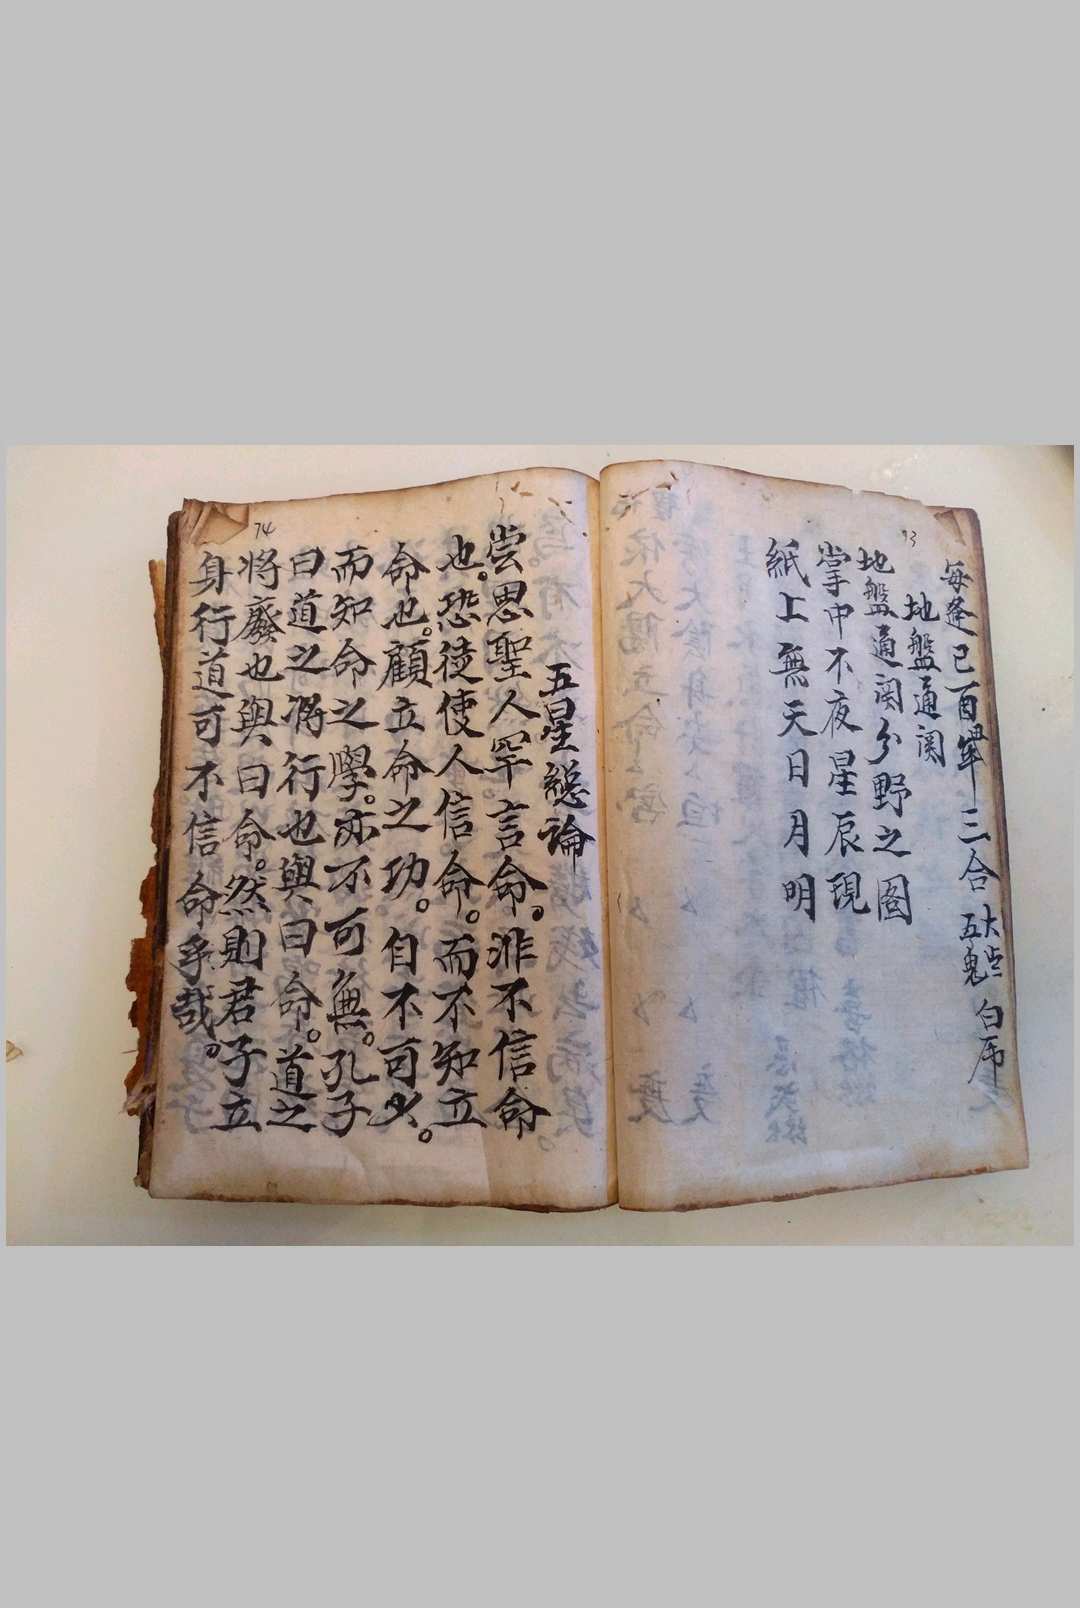 73
每逢巳酉丑年三合 五鬼 白虎
地盤通関
地盤通関分野之圖
掌中不夜星辰現
紙上無天日月明
74
五星總論
尝思聖人罕言命。非不信命
也。恐徒使人信命。而不知立
命也。顧立命之功。自不可少。
而知命之學。亦不可無。孔子
曰道之将行也與曰命。道之
將廢也與曰命。然則君子立
身行道可不信命乎哉。